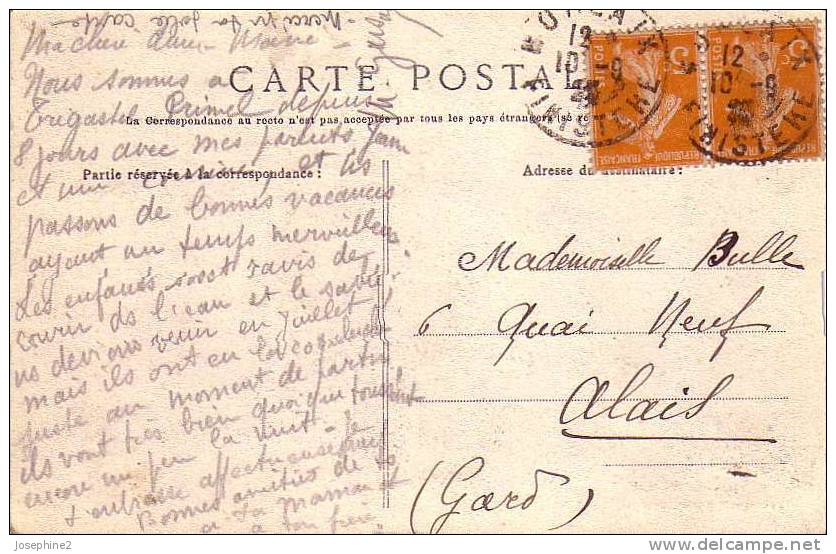 Merci de ta jolie carte -
Ma chère Anne-Marie -
Nous sommes à
Trégastel Primel depuis
8 jours avec mes parents Jean
et un cousin, et ils
passons de bonnes vacances
ayant un temps merveilleux
Les enfants sont ravis de
courir ds l'eau et le sable
ns devions venir en Juillet
mais ils ont eu la coqueluche
juste au moment de partir
ils vont très bien quoique toussant
encore un peu la nuit - Je
t'embrasse affectueusement
Bonnes amitiés de
à ta maman et
à ton frère
CARTE POSTALE
La Correspondance au recto n'est pas acceptée par tous les pays étrangers
Partie réservée à la correspondance :
Adresse du destinataire :
12
10
FINISTERE
12
10 -8
FINISTERE
5c
POSTES
REPUBLIQUE FRANÇAISE
5c
POSTES
REPUBLIQUE FRANÇAISE
Mademoiselle Bulle
6 Quai Neuf
Alais
(Gard)
Josephine2
DELCAMPE.NET